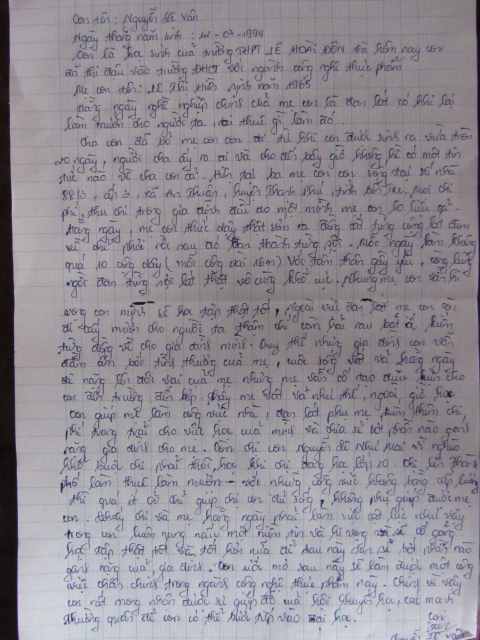 Con tên: Nguyễn Lê Vân
Ngày tháng năm sinh: 12-07-1994
Con là học sinh của trường THPT LÊ HOÀI ĐÔN và hôm nay con
đã thi đậu vào trường ĐHCT với ngành công nghệ thực phẩm.
Mẹ con tên: LÊ Thị sinh năm 1965
Hằng ngày nghề nghiệp chính của mẹ con là đan lát có khi lại
làm mướn cho người ta, ai thuê gì làm đó.
Cha con đã bỏ mẹ con con đi từ khi con được sinh ra vừa tròn
20 ngày, người cha ấy ra đi và cho đến bây giờ không hề có một tin
tức nào về cha con cả. Hiện tại ba mẹ con con sống tại số nhà
ấp 3, xã An Thuận, huyện Thạnh Phú, tỉnh Bến Tre, mọi chi
phí, thu chi trong gia đình đều do một mình mẹ con lo liệu cả.
Hằng ngày, mẹ con thức dậy thật sớm ra đồng cắt từng cọng lát đem
về phải rồi sau đó đan thành từng sợi. Mỗi ngày làm không
quá 10 cọng dây (mỗi cọng dài 16m) với tấm thân gầy yếu, còng lưng
ngồi đan từng sợi lát thật vô cùng khổ cực. Nhưng mẹ con vẫn hi
vọng con mình sẽ học tập thật tốt, ngoài việc đan lát mẹ con còn
đi cấy mướn cho người ta thậm chí còn hái rau bắt ốc kiếm
từng đồng về cho gia đình mình. Tuy thế nhưng gia đình con vẫn
đầm ấm bởi tình thương của mẹ, cuộc sống vất vả hằng ngày
đè nặng lên đôi vai của mẹ nhưng mẹ vẫn cố tạo điều kiện cho
con đến trường đến lớp. Thấy mẹ vất vả như thế, ngoài giờ học
con giúp mẹ làm công việc nhà, đan lát phụ mẹ kiếm thêm chi
phí trang trải cho việc học của mình và chia sẻ bớt phần nào gánh
nặng gia đình cho mẹ. Còn chị con Nguyễn Lê Như Mai vì nghèo
khổ buộc chị phải thôi học khi chị đang học lớp 10. Chị lên thành
phố làm thuê làm mướn với những công sức nhưng đồng lương
thì quá ít ỏi chỉ giúp chị con đủ sống, không phụ giúp được mẹ
con. Thấy chị và mẹ hằng ngày phải làm việc cật lực như vậy
trong con luôn nung nấu một niềm tin và hi vọng sẽ cố gắng
học tập thật tốt và tốt hơn nữa để sau này đan sẻ bớt phần nào
gánh nặng của gia đình. Con ước mơ sau này sẽ làm được một công
việc chân chính trong ngành công nghệ thực phẩm này. Chính vì vậy
con rất mong nhận được sự giúp đỡ của hội khuyến học, các mạnh
thường quân để con có thể bước tiếp vào đại học.
Con
Nguyễn Lê Vân